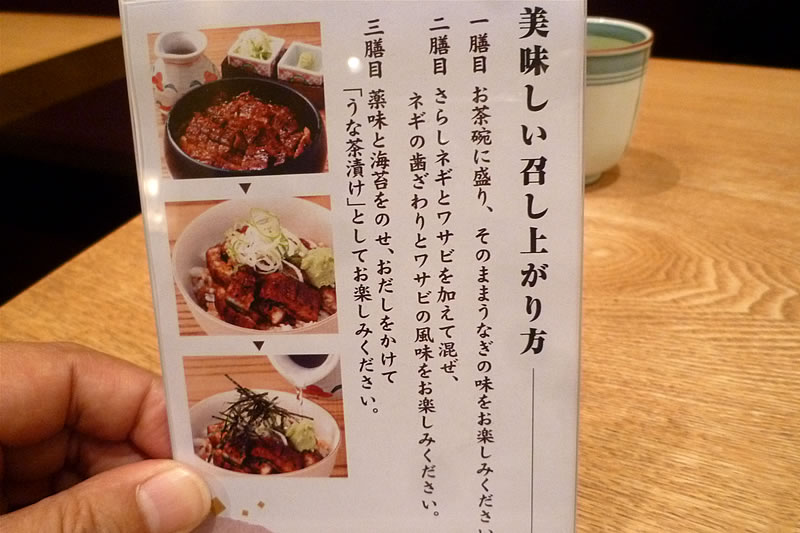 美味しい召し上がり方
一膳目 お茶碗に盛り、そのままうなぎの味をお楽しみください
二膳目 さらしネギとワサビを加えて混ぜ、
ネギの歯ざわりとワサビの風味をお楽しみください。
三膳目 薬味と海苔をのせ、おだしをかけて
「うな茶漬け」としてお楽しみください。